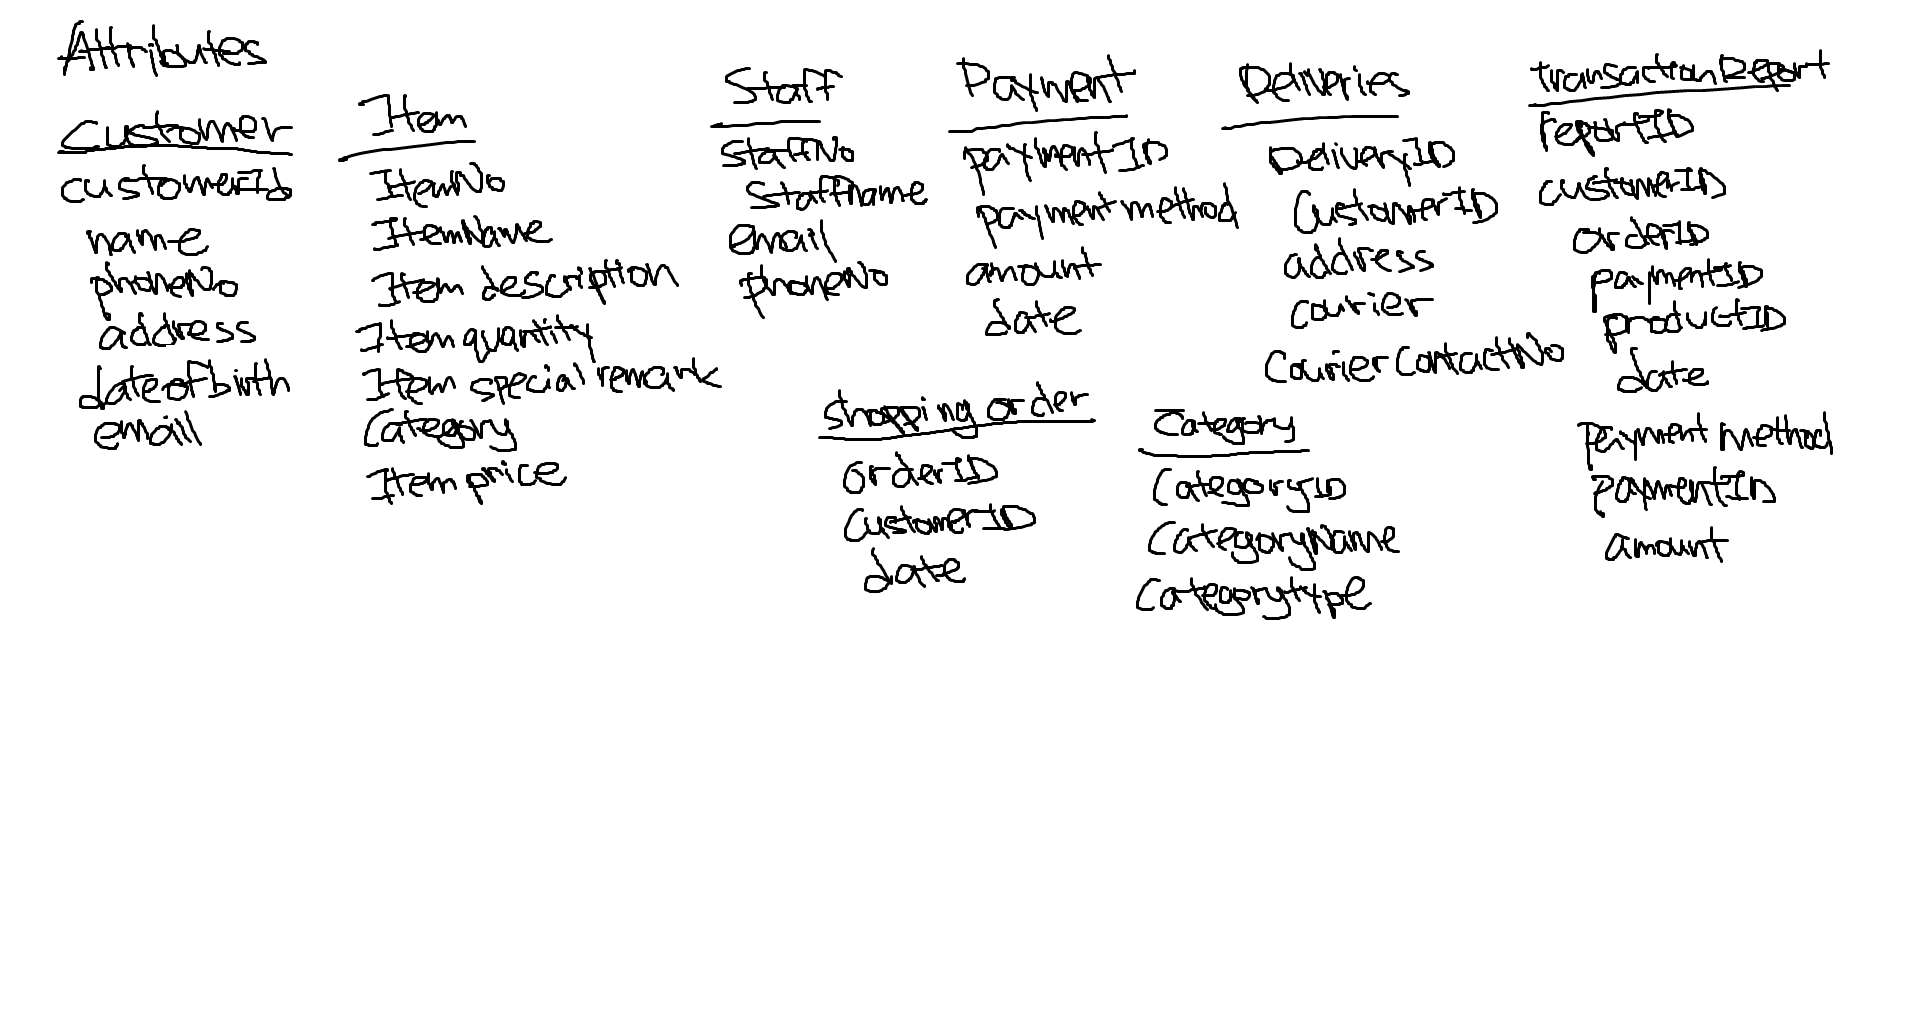 Attributes
Customer
customerId
name
phoneNo
address
dateofbirth
email
Item
ItemNo
ItemName
Item description
Item quantity
Item special remark
Category
Item price
Staff
StaffNo
Staffname
email
phoneNo
Payment
paymentID
payment method
amount
date
Deliveries
DeliveryID
CustomerID
address
courier
Courier ContactNo
transaction Report
reportID
customerID
orderID
paymentID
productID
date
Payment method
paymentID
amount
shopping order
orderID
CustomerID
date
Category
CategoryID
CategoryName
Categorytype